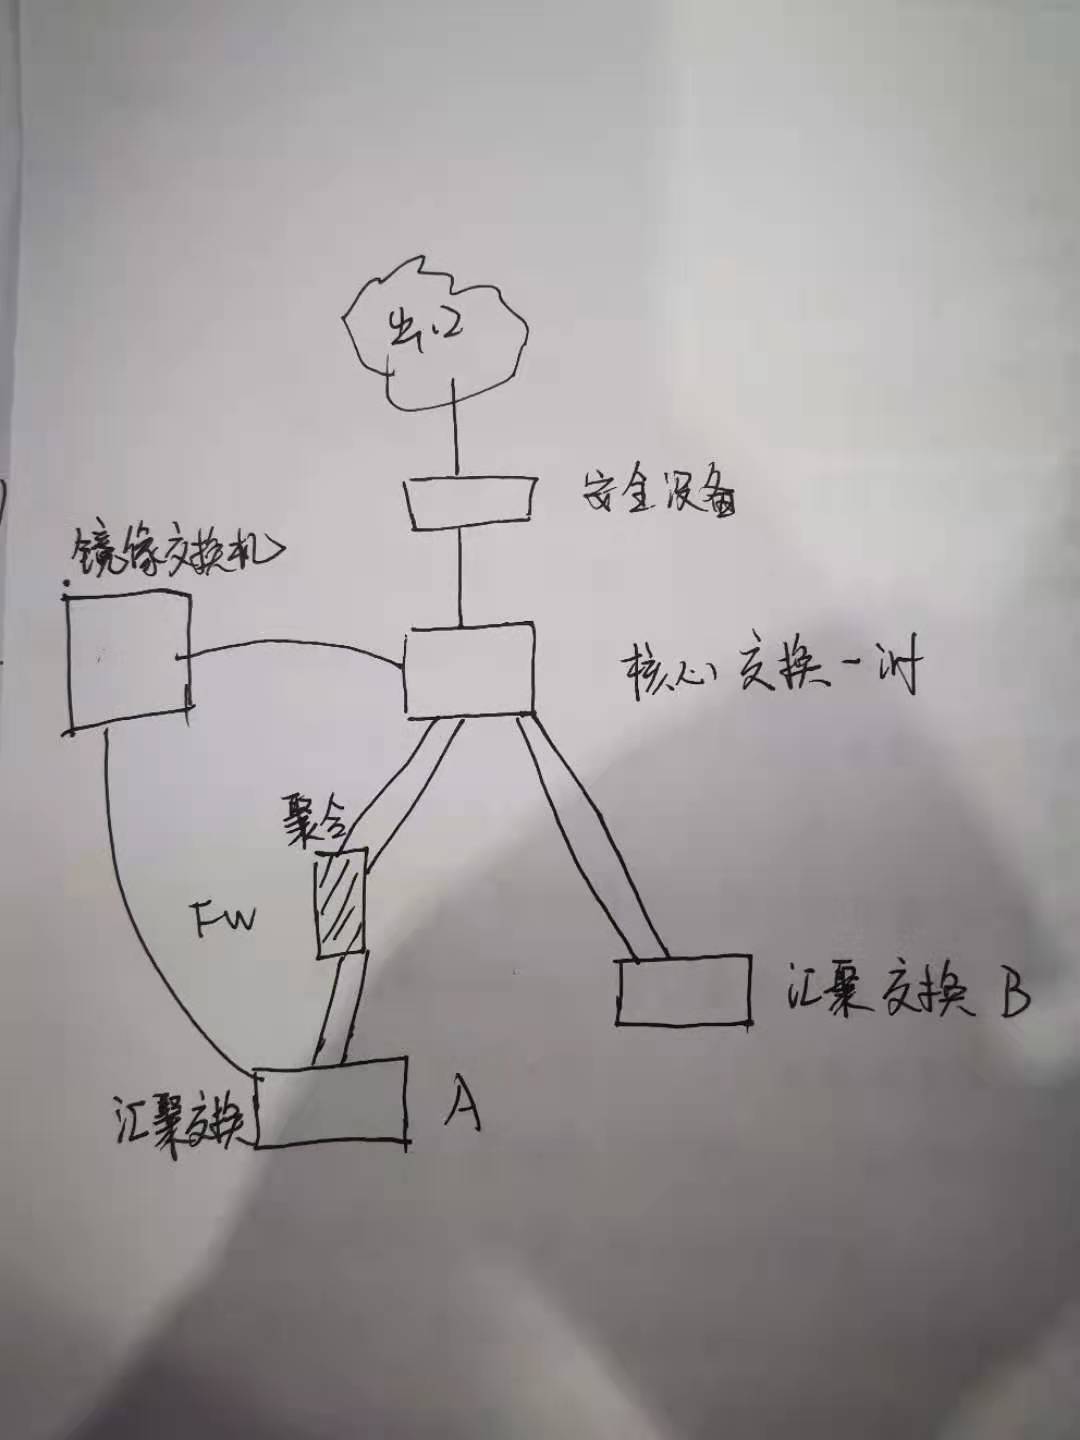 出口
安全设备
镜像交换机
核心交换一对
聚合
FW
汇聚交换 B
汇聚交换
A